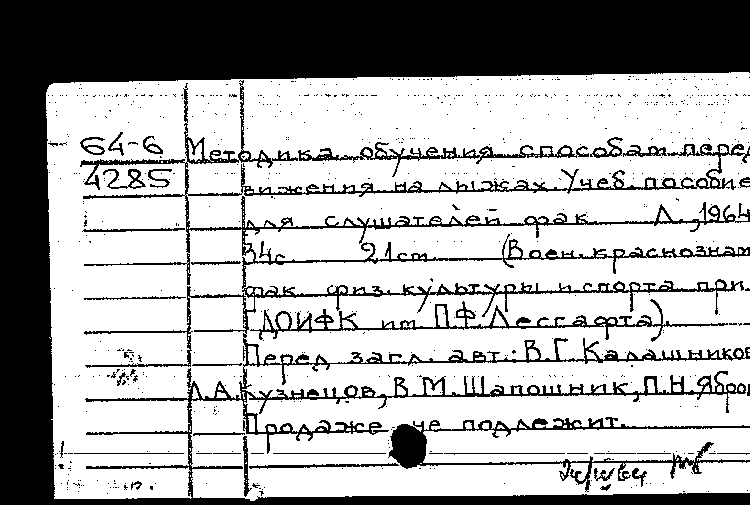 64-6 Методика обучения способам перед
4285 вижения на лыжах. Учеб. пособие
для слушателей фак. Л., 1964
34с 21см (Воен. краснознам
фак физ. культуры и спорта при
ГДОИФК им П.Ф. Лесгафта).
Перед загл. авт.: В.Г. Калашников
Л.А. Кузнецов, В.М. Шапошник, П.Н. Ябро
Продаже не подлежит.